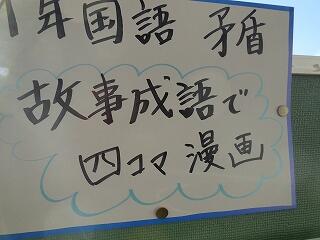 1年国語 矛盾
故事成語で
四コマ漫画